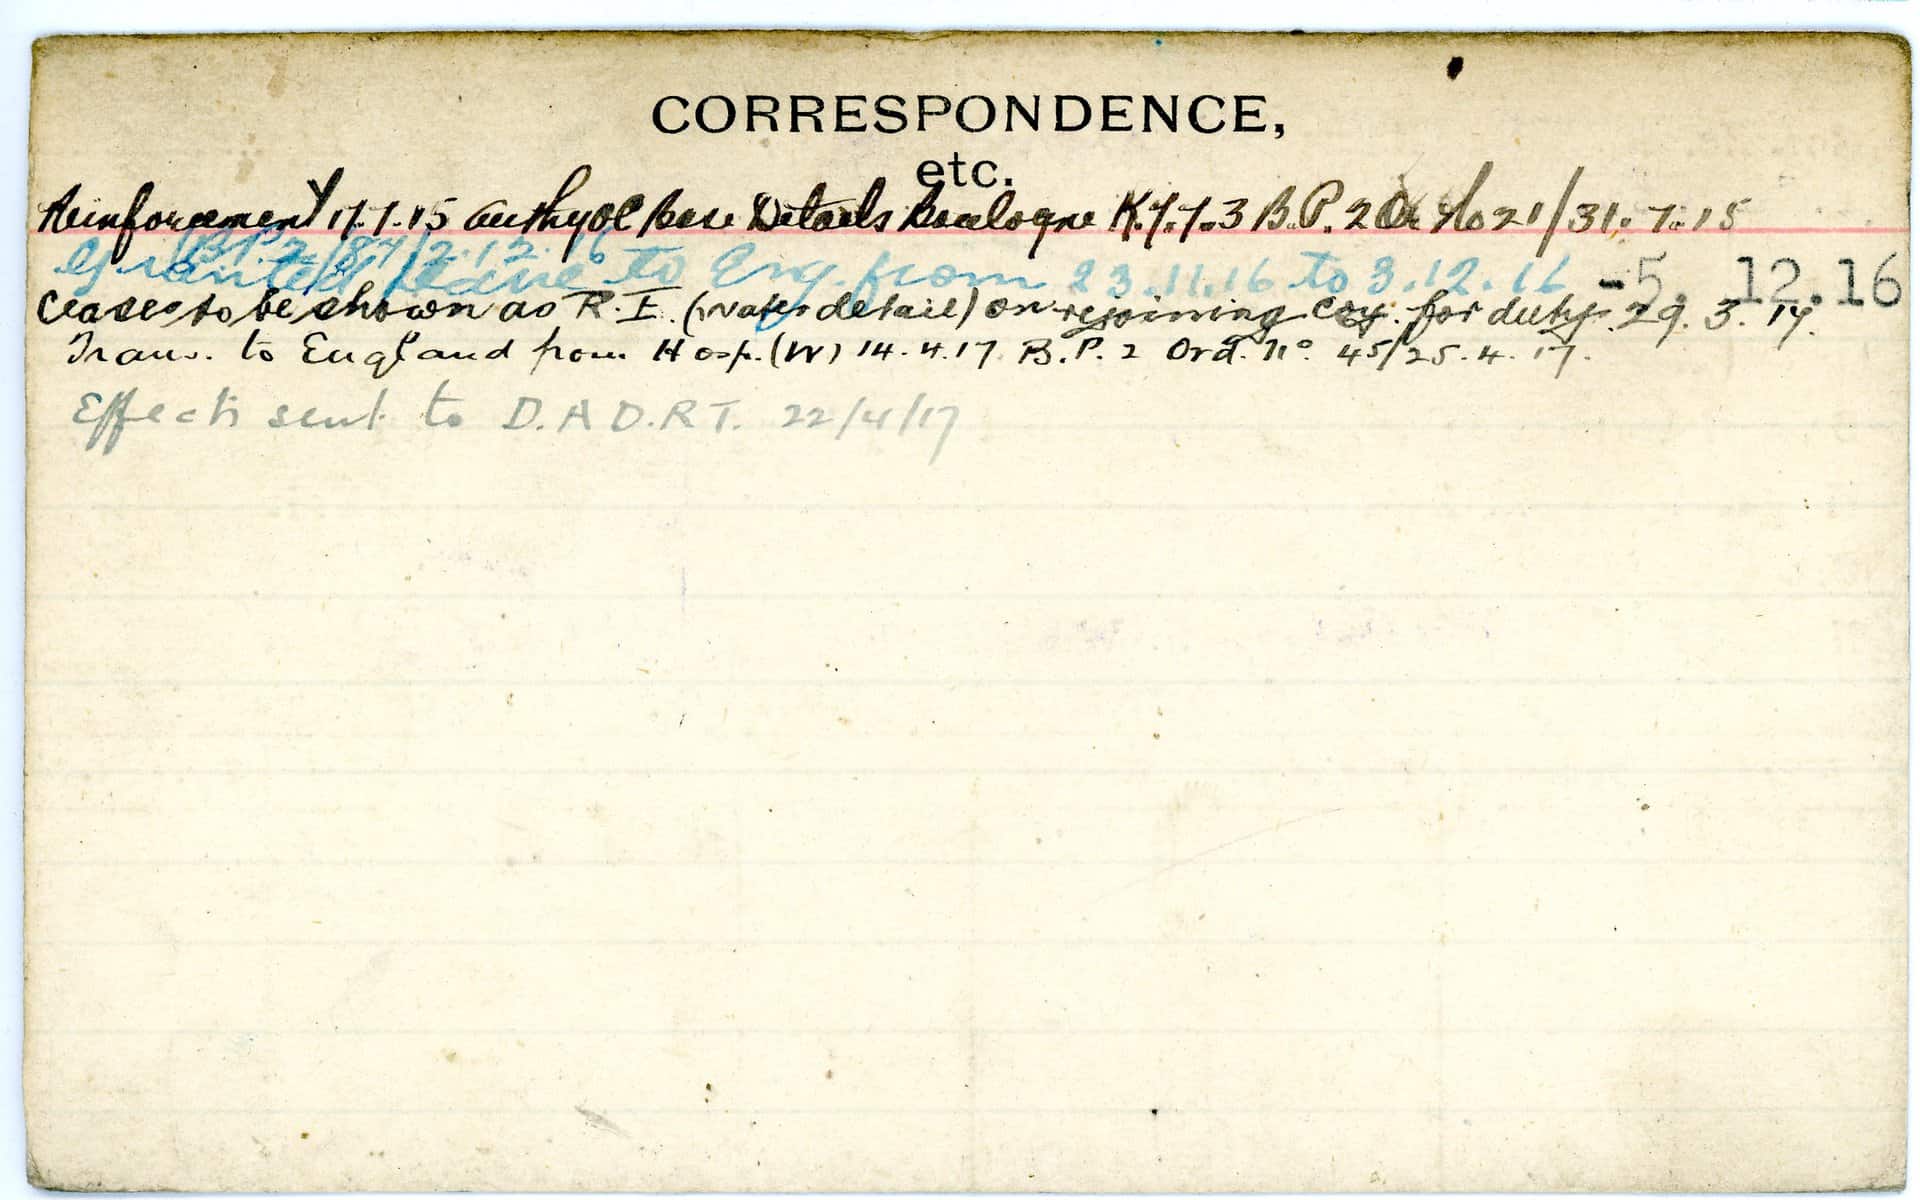 CORRESPONDENCE,
etc.
Reinforcement 17.7.15 auth of Base Details Boulogne K.7.7.3 B.P. 2 Or No 21/31.7.15
B.P.2/84/2.12.16
Granted leave to Eng. from 23.11.16 to 3.12.16 -5. 12.16
Ceases to be shown as R.E. (Water detail) on rejoining coy. for duty. 29.3.17.
Trans. to England from Hosp. (W) 14.4.17 B.P. 2 Ord. No 45/25.4.17.
Effects sent to D.A D.R.T. 22/4/17